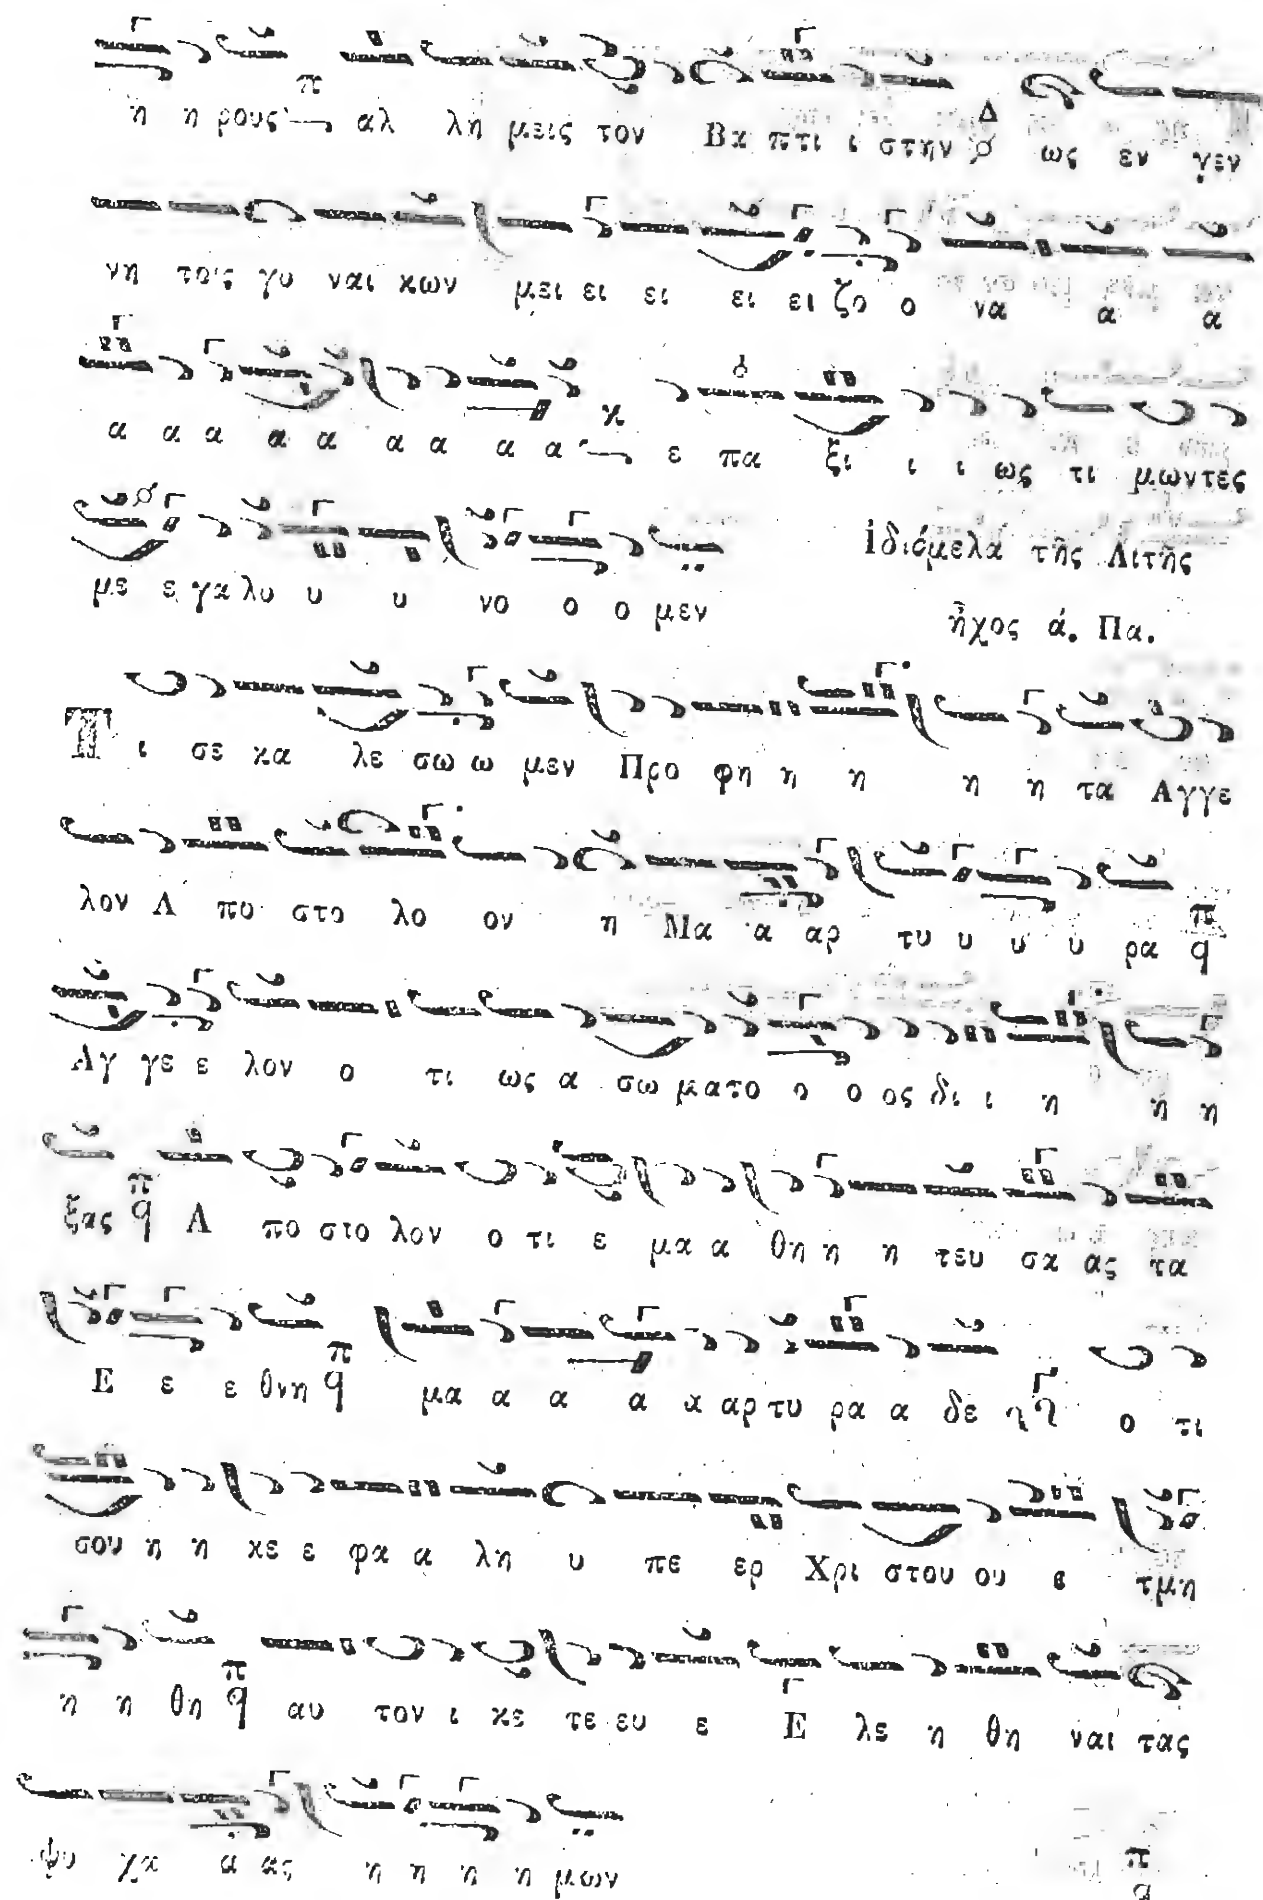 η η ρους π αλ λη μεις τον Βα πτι ι στην Δ ως εν γεν
νη τοις γυ ναι κων μει ει ει ει ει ζο ο να α α
α α α α α α α α α κ ε πα ξι ι ι ως τι μωντες
με ε γα λυ υ υ νο ο ο μεν
ἰδιόμελα τῆς Λιτῆς
ἦχος ά. Πα.
Τ ι σε κα λε σω ω μεν Προ φη η η η η τα Αγγε
λον Α πο στο λο ον η Μα α αρ τυ υ υ υ ρα π q
Αγ γε ε λον ο τι ως α σω ματο ο ο ος δι ι η η η
ξας π q Α πο στο λον ο τι ε μα α θη η η τευ σα ας τα
Ε ε ε θνη π q μα α α α α αρ τυ ρα α δε ο τι
σου η η κε ε φα α λη υ πε ερ Χρι στου ου ε τμη
η η θη π q αυ τον ι κε τε ευ ε Ε λε η θη ναι τας
ψυ χα α ας η η η η μων π q